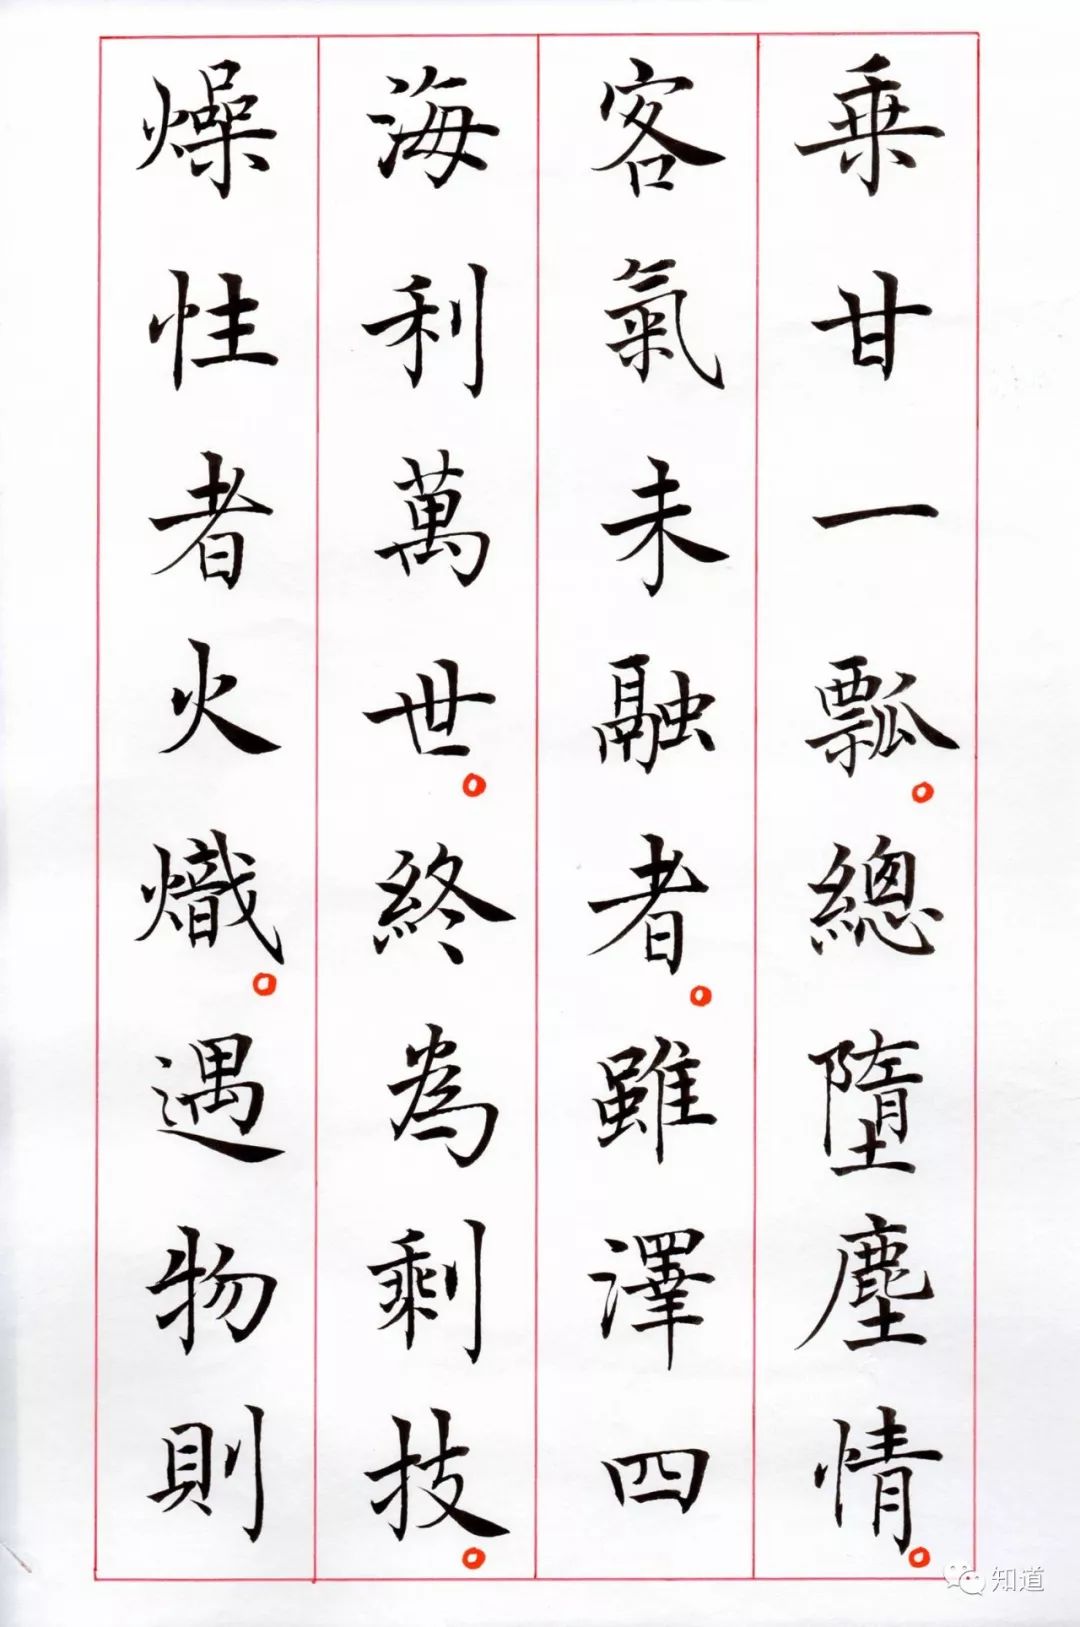 乗甘一瓢。總墮塵情。
客氣未融者。雖澤四
海利萬世。終為剩技。
燥性者火熾。遇物則
知道